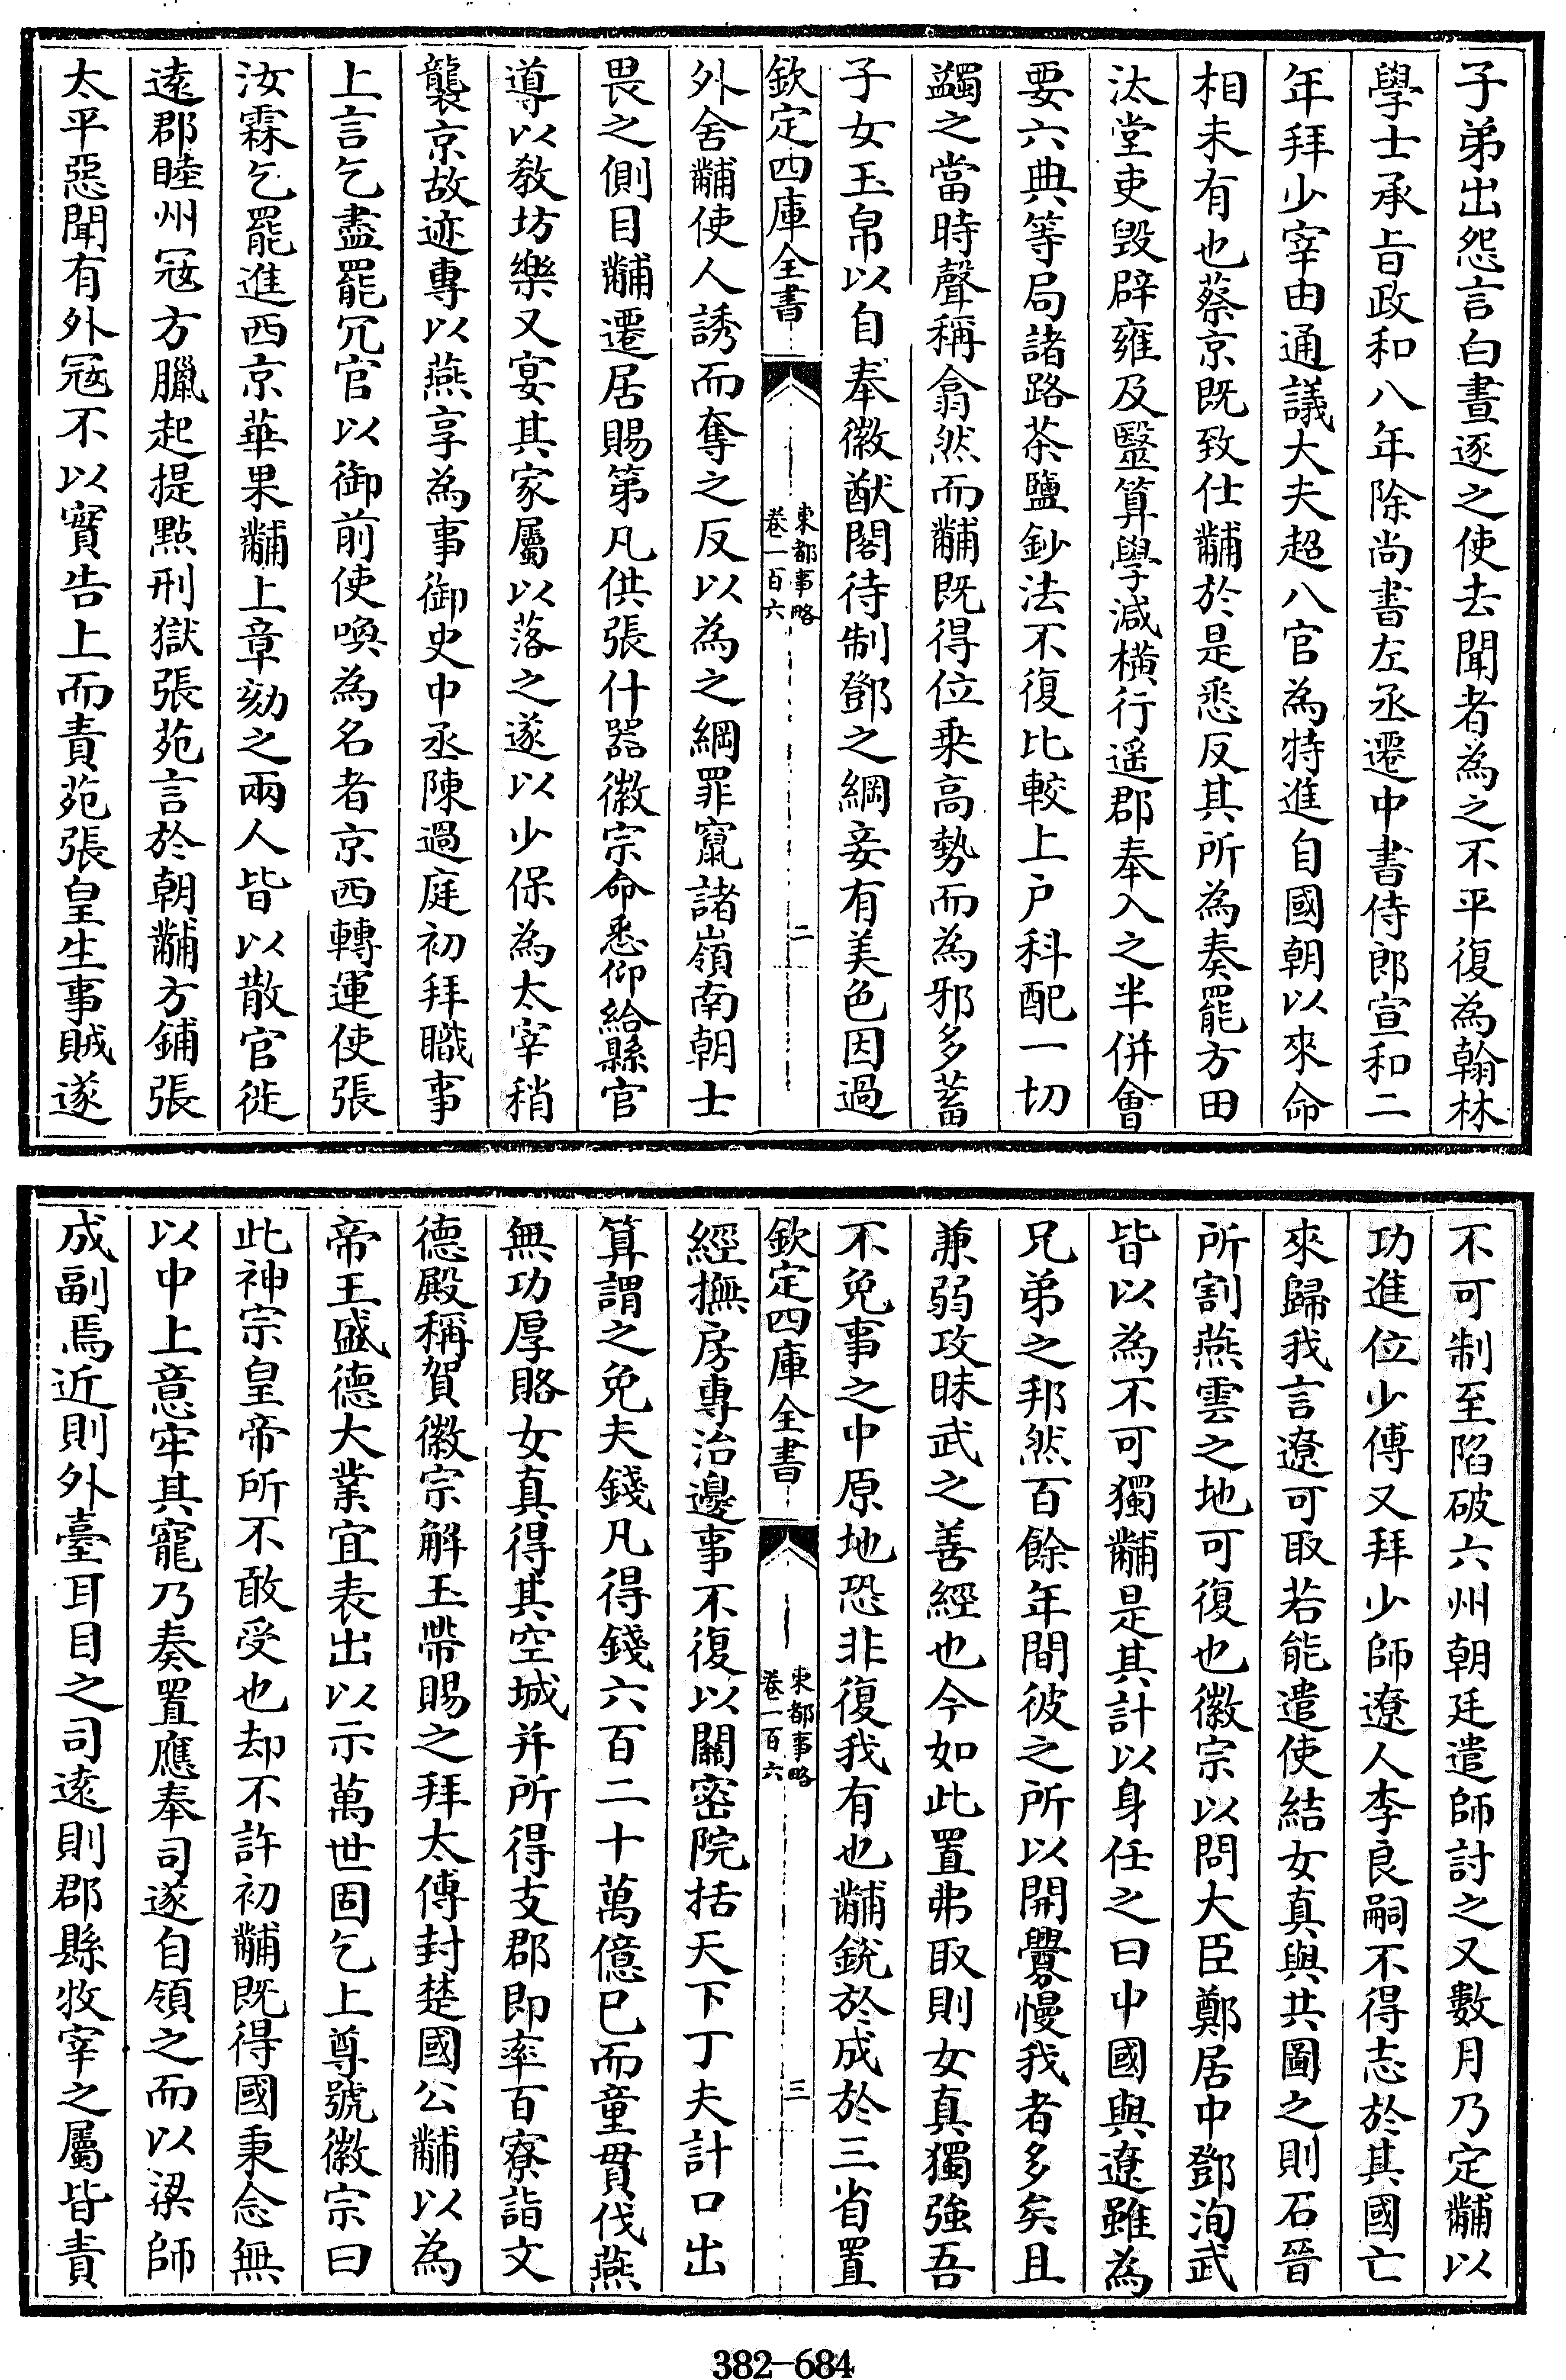 子弟出怨言白晝逐之使去聞者為之不平復為翰林
學士承㫖政和八年除尚書左丞遷中書侍郎宣和二
年拜少宰由通議大夫超八官為特進自國朝以來命
相未有也蔡京既致仕黼於是悉反其所為奏罷方田
汰堂吏毀辟雍及毉算學減橫行遥郡奉入之半併會
要六典等局諸路茶鹽鈔法不復比較上户科配一切
蠲之當時聲稱翕然而黼既得位乗高勢而為邪多蓄
子女玉帛以自奉徽猷閣待制鄧之綱妾有美色因過
欽定四庫全書
東都事略
卷一百六
二
外舍黼使人誘而奪之反以為之綱罪竄諸嶺南朝士
畏之側目黼遷居賜第凡供張什器徽宗命悉仰給縣官
導以教坊樂又宴其家屬以落之遂以少保為太宰稍
襲京故迹專以燕享為事御史中丞陳過庭初拜職事
上言乞盡罷冗官以御前使喚為名者京西轉運使張
汝霖乞罷進西京華果黼上章劾之兩人皆以散官徙
逺郡睦州冦方臘起提點刑獄張苑言於朝黼方鋪張
太平惡聞有外冦不以實告上而責苑張皇生事賊遂
不可制至陷破六州朝廷遣師討之又數月乃定黼以
功進位少傅又拜少師遼人李良嗣不得志於其國亡
來歸我言遼可取若能遣使結女真與共圖之則石晉
所割燕雲之地可復也徽宗以問大臣鄭居中鄧洵武
皆以為不可獨黼是其計以身任之曰中國與遼雖為
兄弟之邦然百餘年間彼之所以開釁慢我者多矣且
兼弱攻昧武之善經也今如此置弗取則女真獨強吾
不免事之中原地恐非復我有也黼銳於成於三省置
欽定四庫全書
東都事略
卷一百六
三
經撫房專治邊事不復以關密院括天下丁夫計口出
算謂之免夫錢凡得錢六百二十萬億已而童貫伐燕
無功厚賂女真得其空城并所得支郡即率百寮詣文
德殿稱賀徽宗解玉帶賜之拜太傅封楚國公黼以為
帝王盛德大業宜表出以示萬世固乞上尊號徽宗曰
此神宗皇帝所不敢受也却不許初黼既得國秉念無
以中上意牢其寵乃奏置應奉司遂自領之而以梁師
成副焉近則外臺耳目之司逺則郡縣牧宰之屬皆責
382-684